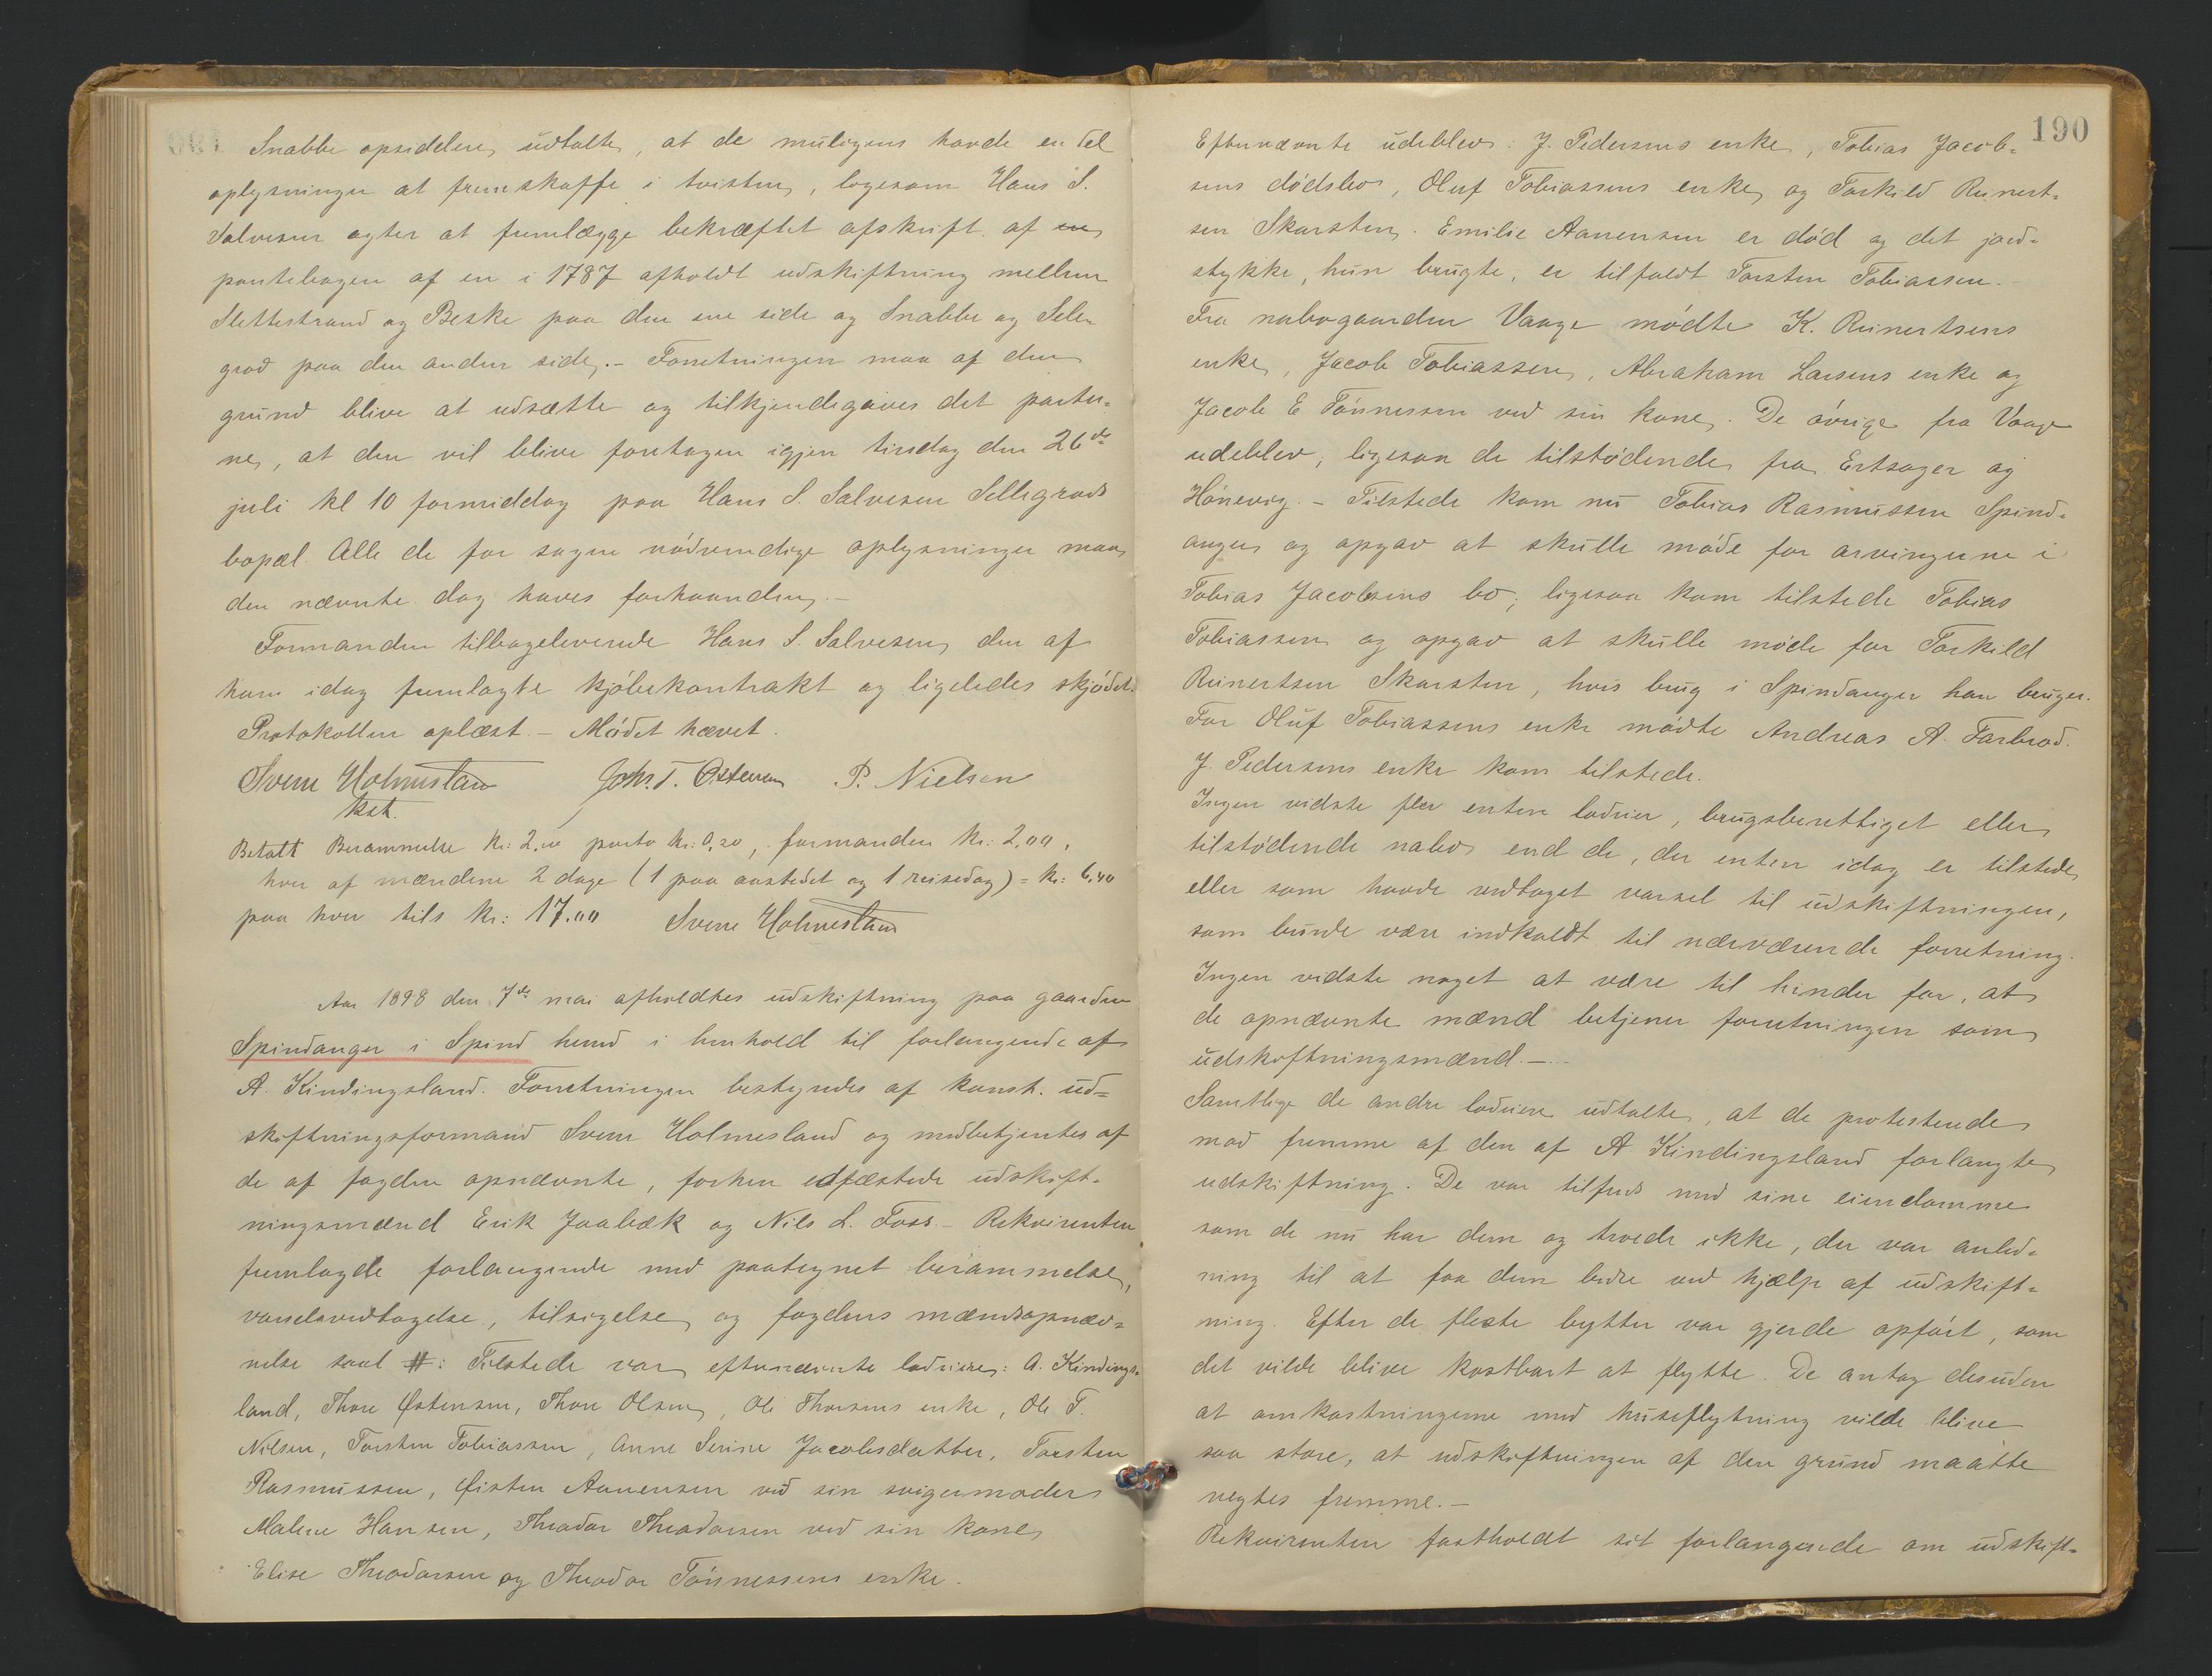 Snabbe opsiddere udtalte, at de muligens havde en del
oplysninger at fremskaffe i tvisten, ligesom Hans S.
Salvesen agter at fremlægge bekræftet afskrift af en
pantebogen af en i 1787 afholdt udskiftning mellem
Slettestrand og Beske paa den ene side og Snabbe og Sele-
grød paa den anden side. - Forretningen maa af den
grund blive at udsætte og tilkjendegives det parter-
ne, at den vil blive foretagen igjen tirsdag den 26de
juli kl 10 formiddag paa Hans S. Salvesen Sellegrøds
bopæl. Alle de for sagen nödvendige oplysninger maa
den nævnte dag haves forhaanden. -
Formanden tilbageleverede Hans S. Salvesen den af
ham idag fremlagte kjöbekontrakt og ligeledes skjödet.
Protokollen oplæst. - Mödet hævet.
Svein Holmesland Johs. T. Ostensen P. Nielsen
kst.
Betalt Berammelse kr: 2,00 porto kr: 0,20, formanden kr: 2,00,
hver af mændene 2 dage (1 paa aastedet og 1 reisedag) = kr: 6,40
paa hver tils kr: 17.00 Svein Holmesland
Aar 1898 den 7de mai afholdtes udskiftning paa gaarden
Spindanger i Spind herred i henhold til forlangende af
A. Kindingsland. Forretningen bestyredes af konst. ud=
skiftningsformand Svein Holmesland og medbetjentes af
de af fogden opnævnte, forhen edfæstede udskift-
ningsmænd Erik Jaabæk og Nils L. Foss. - Rekvirenten
fremlagde forlangende med paategnet berammelse,
varselsvedtagelse, tilsigelse og fogdens mændsopnæv=
nelse saal #: Tilstede var efternævnte lodeiere: A. Kindings-
land, Thore Østensen, Thore Olsen, Ole Thorsens enke, Ole T.
Nilsen, Torsten Tobiassen, Anne Serine Jacobsdatter, Torsten
Rasmussen, Øisten Aanensen ved sin svigermoder
Malene Hansen, Theodor Theodorsen ved sin kone
Elise Theodorsen og Theodor Tönnessens enke.
190
Efternævnte udeblev: J. Pedersens enke, Tobias Jacob-
sens dödsbo, Oluf Tobiassens enke og Torkild Reinert-
sen Skarsten. Emilie Aanensen er död og det jord-
stykke, hun brugte, er tilfaldt Torsten Tobiassen. -
Fra nabogaarden Vaage mödte K. Reinertsens
enke, Jacob Tobiassen, Abraham Larsens enke og
Jacob E Tönnessen ved sin kone. De övrige fra Vaage
udeblev, ligesaa de tilstödende fra Ertsager og
Hönevig. - Tilstede kom nu Tobias Rasmussen Spind-
anger og opgav at skulle möde for arvingerne i
Tobias Jacobsens bo; ligesaa kom tilstede Tobias
Tobiassen og opgav at skulle möde for Torkild
Reinertsen Skarsten, hvis brug i Spindanger han bruger.
For Oluf Tobiassens enke mödte Andreas A. Farbrod.
J. Pedersens enke kom tilstede.
Ingen vidste fler enten lodeier, brugsberettiget eller
tilstödende nabo end de, der enten idag er tilstede
eller som havde vedtaget varsel til udskiftningen,
som burde være indkaldt til nærværende forretning.
Ingen vidste noget at være til hinder for, at
de opnævnte mænd betjener forretningen som
udskiftningsmænd. -
Samtlige de andre lodeiere udtalte, at de protesterede
mod fremme af den af A Kindingsland forlangte
udskiftning. De var tilfreds med sine eiendomme
som de nu har dem og troede ikke, der var anled-
ning til at faa dem bedre ved hjælp af udskift-
ning. Efter de fleste bytter var gjerde opfört, som
det vilde blive kostbart at flytte. De antog desuden
at omkostningerne med huseflytning vilde blive
saa store, at udskiftningen af den grund maatte
negtes fremme. -
Rekvirenten fastholdt sit forlangende om udskift-